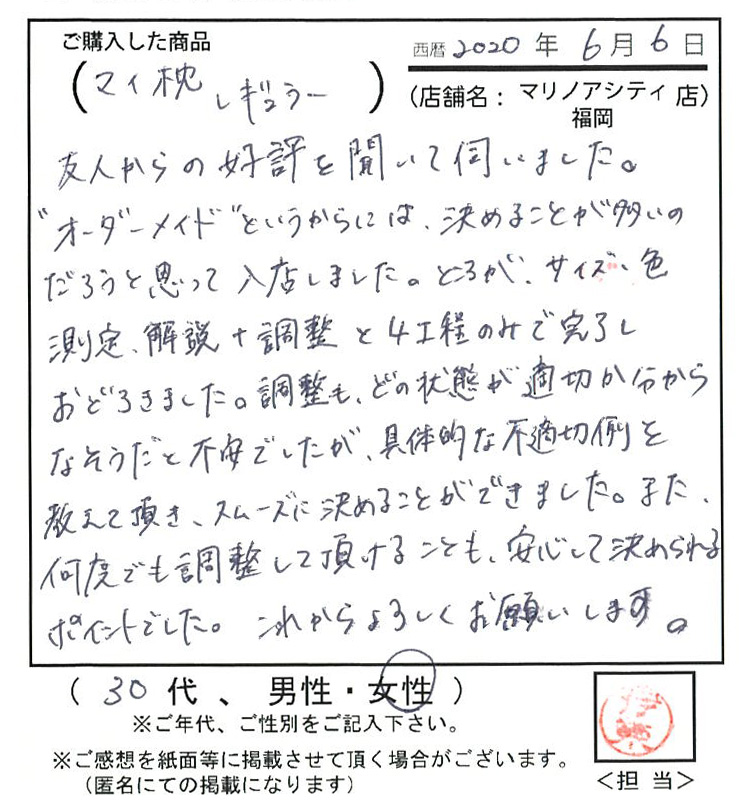 ご購入した商品
西暦 2020 年 6 月 6 日
(マイ枕 レギュラー)
(店舗名： マリノアシティ福岡 店)
友人からの好評を聞いて伺いました。
"オーダーメイド"というからには、決めることが多いの
だろうと思って入店しました。ところが、サイズ・色
測定、解説+調整と4工程のみで完了し
おどろきました。調整も、どの状態が適切か分から
なそうだと不安でしたが、具体的な不適切例を
教えて頂き、スムーズに決めることができました。また、
何度でも調整して頂けることも、安心して決められる
ポイントでした。これからよろしくお願いします。
(30代、男性・女性)
※ご年代、ご性別をご記入下さい。
※ご感想を紙面等に掲載させて頂く場合がございます。
(匿名にての掲載になります)
＜担当＞